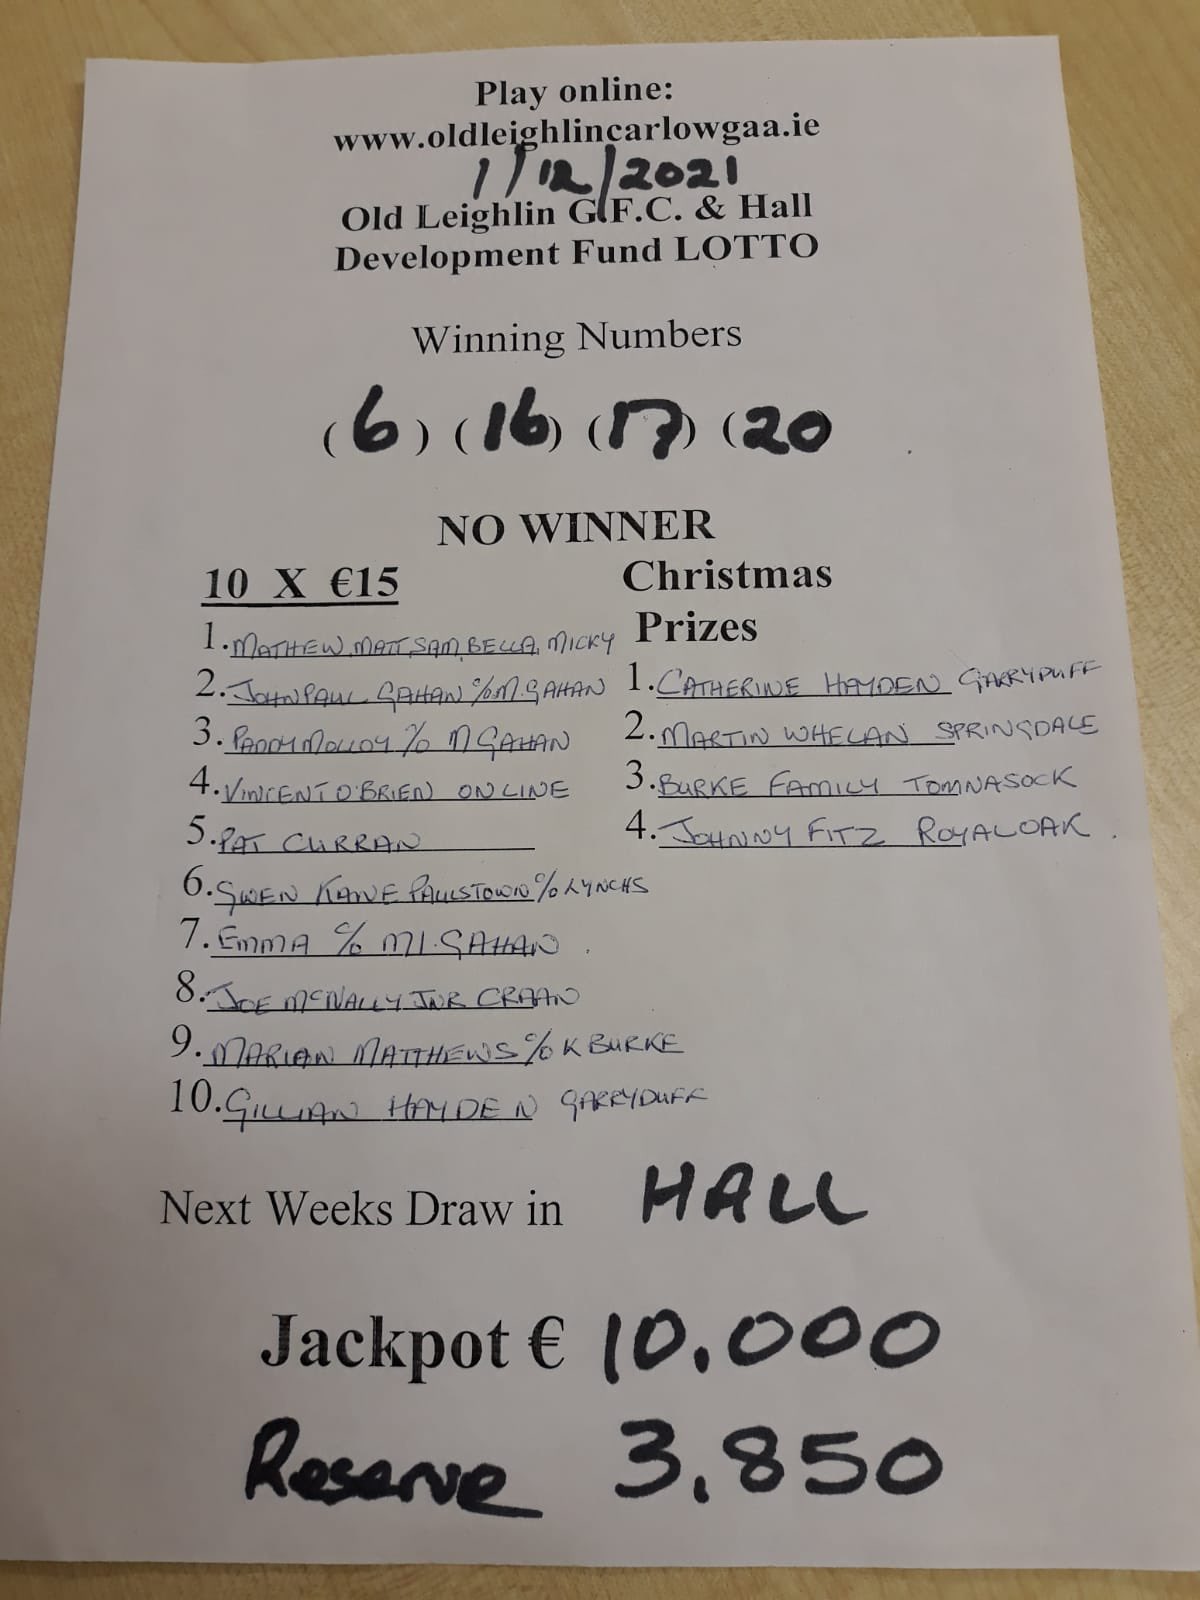 Play online:
www.oldleighlincarlowgaa.ie
1/12/2021
Old Leighlin G.F.C. & Hall
Development Fund LOTTO
Winning Numbers
(6) (16) (17) (20)
NO WINNER
10 X €15
1. MATHEW, MATT, SAM, BELLA, MICKY
2. JOHNPAUL GAHAN % M. GAHAN
3. PADDY MOLLOY % M GAHAN
4. VINCENT O'BRIEN ONLINE
5. PAT CURRAN
6. GWEN KANE PAULSTOWN % LYNCHS
7. EMMA % MI. GAHAN
8. JOE McNALLY JNR CRAAN
9. MARIAN MATTHEWS % K BURKE
10. GILLIAN HAYDEN GARRYDUFF
Christmas
Prizes
1. CATHERINE HAYDEN GARRYDUFF
2. MARTIN WHELAN SPRINGDALE
3. BURKE FAMILY TOMNASOCK
4. JOHNNY FITZ ROYALOAK
Next Weeks Draw in HALL
Jackpot € 10.000
Reserve 3.850